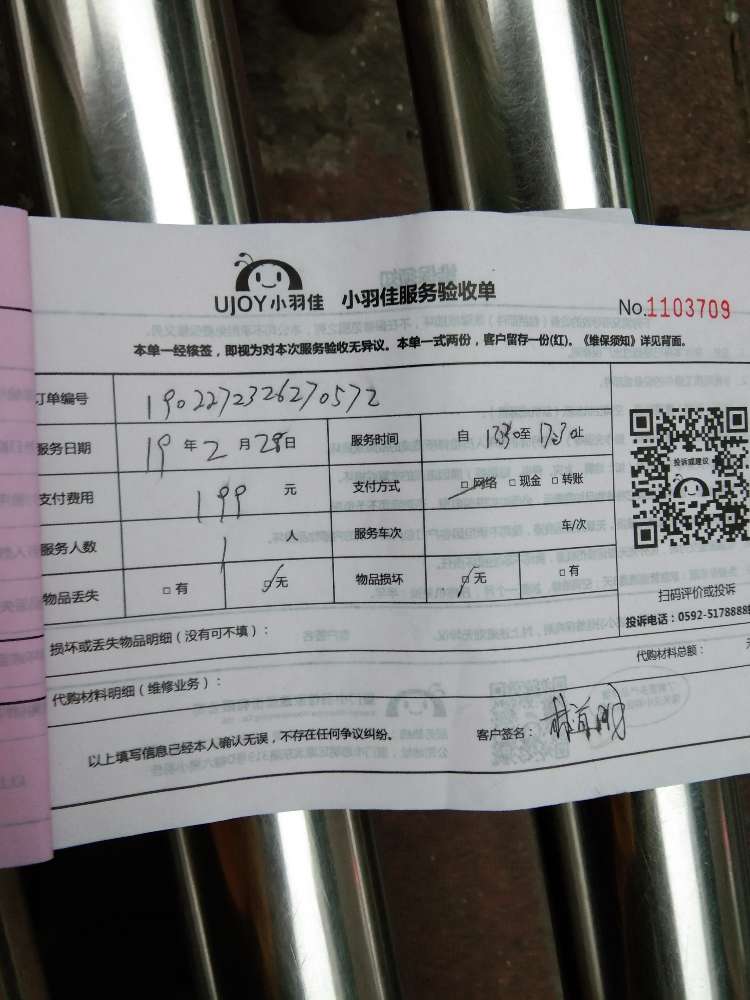 UJOY小羽佳 小羽佳服务验收单
No.1103709
本单一经核签，即视为对本次服务验收无异议。本单一式两份，客户留存一份(红)。《维保须知》详见背面。
订单编号 1902272326270572
服务日期 19 年 2 月 28 日 服务时间 自 13:30 至 17:30 止
支付费用 199 元 支付方式 □ 网络 □ 现金 □ 转账
服务人数 1 人 服务车次 车/次
物品丢失 □ 有 □ 无 物品损坏 □ 无 □ 有
投诉或建议
扫码评价或投诉
投诉电话：0592-5178888
损坏或丢失物品明细（没有可不填）：
代购材料明细（维修业务）： 代购材料总额： 元
以上填写信息已经本人确认无误，不存在任何争议纠纷。 客户签名：